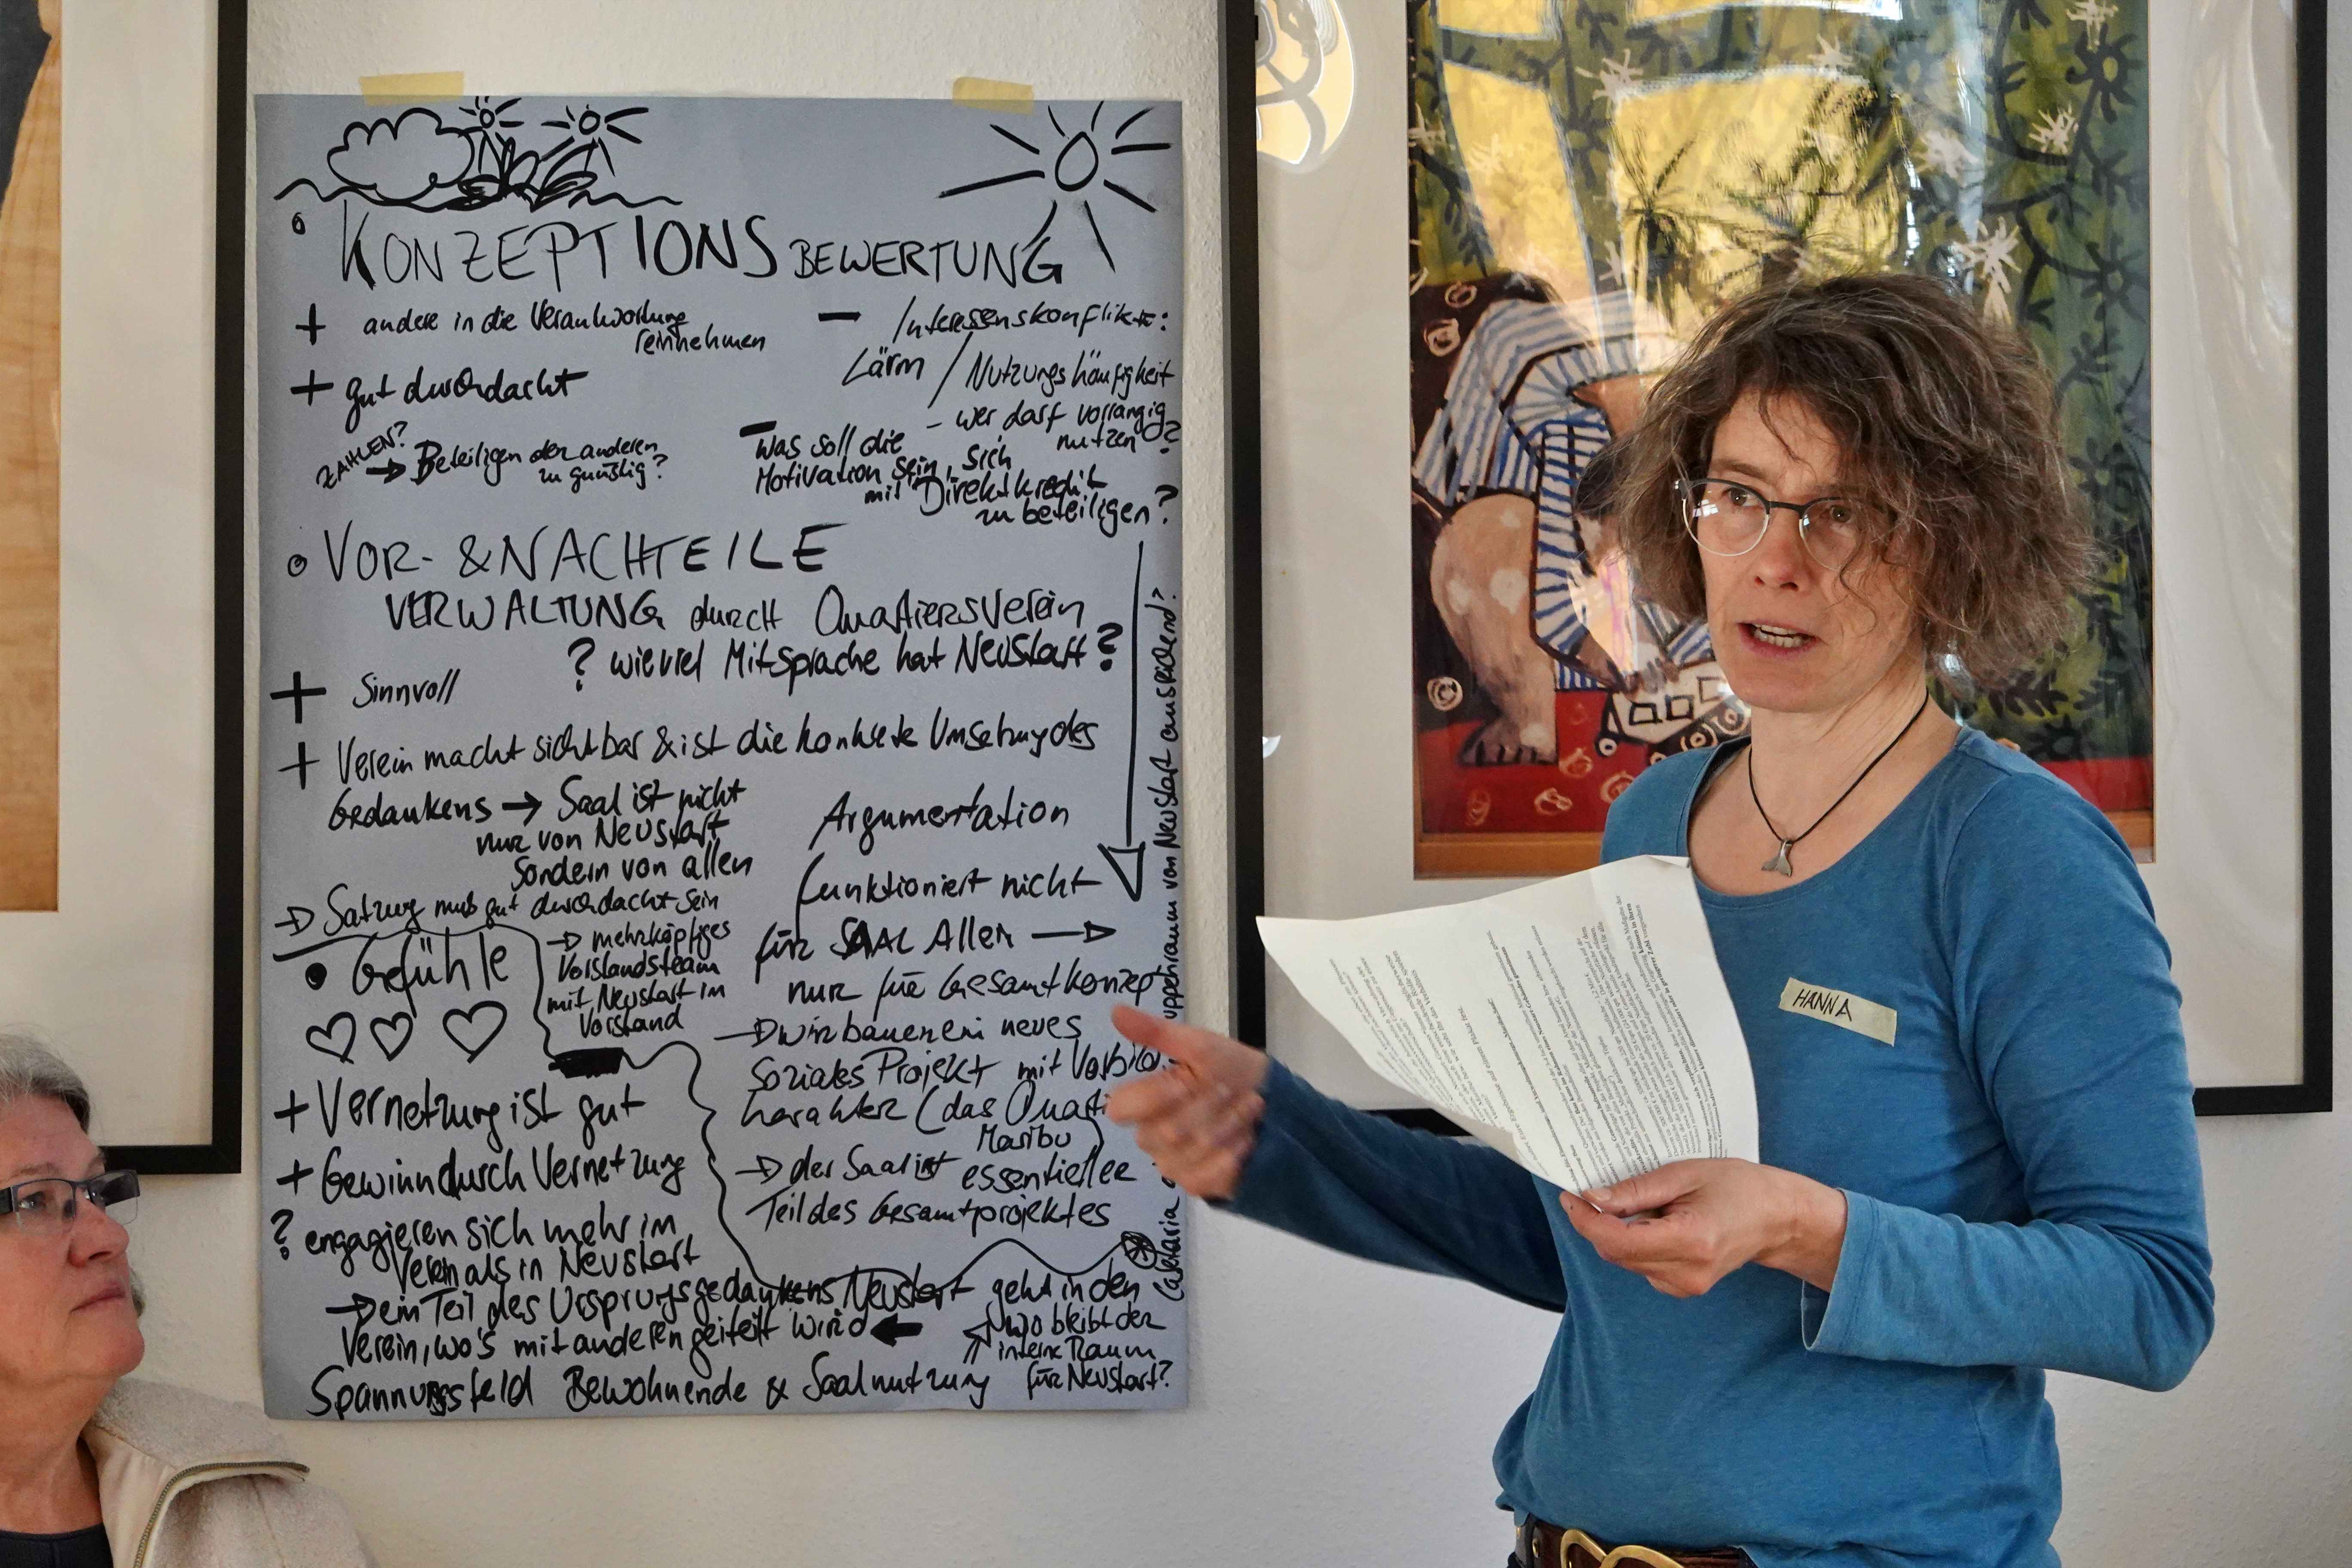 KONZEPTIONSBEWERTUNG
+ andere in die Verantwortung
reinnehmen
+ gut durchdacht
ZAHLEN?
→ Beteiligen der anderen
zu günstig?
– Interessenskonflikte:
Lärm / Nutzungshäufigkeit
- wer darf vorrangig
nutzen?
– Was soll die
Motivation sein, sich
mit Direktkredit
zu beteiligen?
VOR- & NACHTEILE
VERWALTUNG durch Quatiersverein
? wieviel Mitsprache hat Neustart?
+ Sinnvoll
+ Verein macht sichtbar & ist die konkrete Umsetzung des
Gedankens → Saal ist nicht
nur von Neustart
sondern von allen
→ Satzung muß gut durchdacht sein
→ mehrköpfiges
Vorstandsteam
mit Neustart im
Vorstand
Argumentation
funktioniert nicht
für SAAL Allein →
nur für Gesamtkonzept
→ wir bauen ein neues
Soziales Projekt mit Vorbild
charakter (das Quati
Maribu
→ der Saal ist essentieller
Teil des Gesamtprojektes
von Neustart ausreichend?
• Gefühle
+ Vernetzung ist gut
+ Gewinn durch Vernetzung
? engagieren sich mehr im
Verein als in Neustart
→ ein Teil des Ursprungsgedankens Neustart geht in den
Verein, wo's mit anderen geteilt wird
wo bleibt der
interne Raum
für Neustart?
Spannungsfeld Bewohnende & Saalnutzung
HANNA